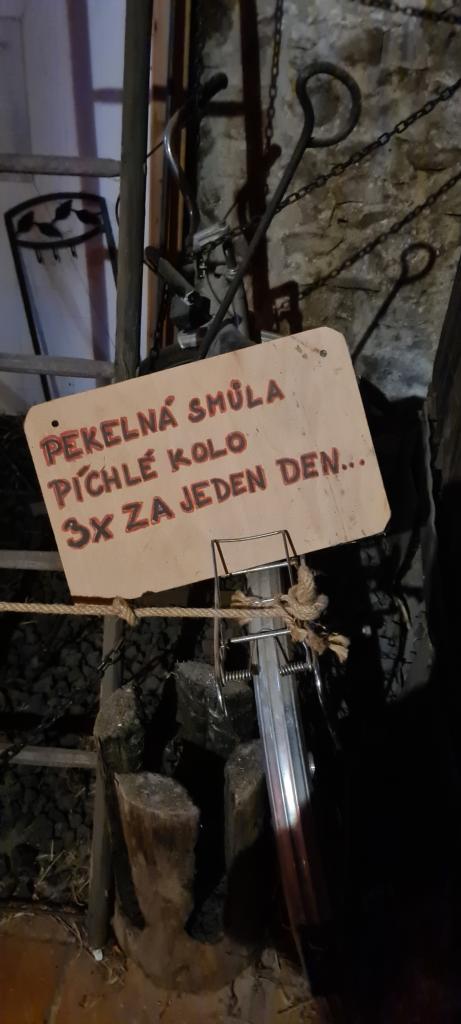 PEKELNÁ SMŮLA
PÍCHLÉ KOLO
3X ZA JEDEN DEN...